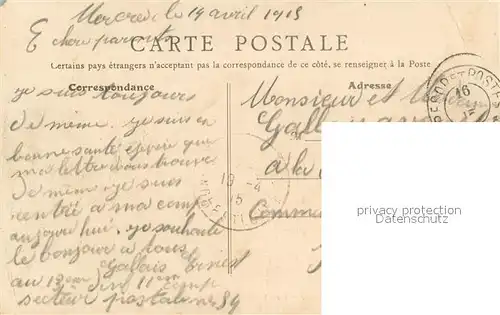 Mercredi le 14 avril 1915
E chere parents
CARTE POSTALE
Certains pays étrangers n'acceptant pas la correspondance de ce côté, se renseigner à la Poste
Correspondance
Adresse
je suis toujours
de meme. je suis en
bonne santé espoire que
ma lettre vous trouve
de meme. je suis
rentré a ma comp
aujour hui. je souhaite
le bonjour a tous
Gallais Ernest
au 12em 11em comp
secteur postale no 84
Monsieur et
Gallais
a la
Comm
privacy protection
Datenschutz
16
19 -4
15